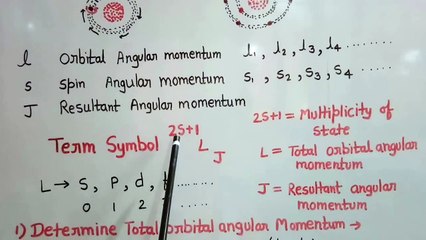 l Orbital Angular momentum l1, l2, l3, l4 ........
s Spin Angular momentum S1, S2, S3, S4 ........
J Resultant Angular momentum
Term Symbol 2S+1 L J
2S+1 = Multiplicity of state
L = Total orbital angular momentum
J = Resultant angular momentum
L → S, P, d, ........
0 1 2
1) Determine Total orbital angular Momentum →